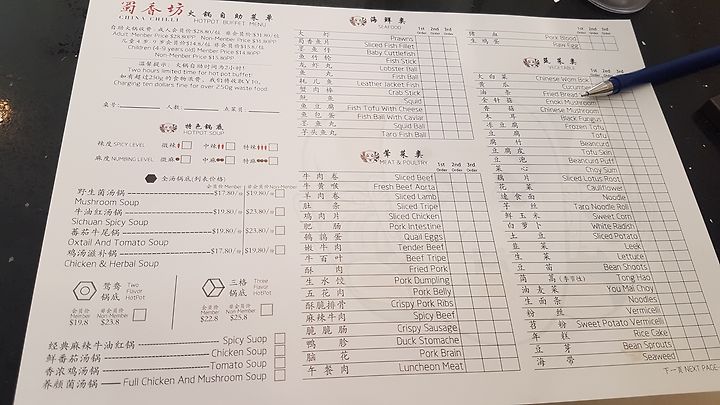 蜀香坊 火锅自助菜单
CHINA CHILLI HOTPOT BUFFET MENU
Adult Member Price $28.80PP Non-Member Price $31.80PP
Children (4-9 years old) Member Price $14.80PP
Non-Member Price $15.80PP
温馨提示：火锅自助时间为2小时!
Two hours limited time for hot pot buffet.
Charging ten dollars fine for over 250g waste food
特色锅底
HOTPOT SOUP
辣度 SPICY LEVEL 微辣 中辣 特辣
麻度 NUMBING LEVEL 微麻 中麻 特麻
全汤锅底(列表价格)
会员价Member 非会员价Non-Member
野生菌汤锅 $17.80/锅 $19.80/锅
Mushroom Soup
牛油红汤锅 $19.80/锅 $23.80/锅
Sichuan Spicy Soup
番茄牛尾锅 $19.80/锅 $23.80/锅
Oxtail And Tomato Soup
鸡汤滋补锅 $17.80/锅 $19.80/锅
Chicken & Herbal Soup
鸳鸯锅底 Two Flavor HotPot
会员价 Member $19.8 非会员价 Non-Member $23.8
三格锅底 Three Flavor HotPot
会员价 Member $22.8 非会员价 Non-Member $25.8
经典麻辣牛油红锅 Spicy Suop
鲜番茄汤锅 Chicken Soup
香浓鸡汤锅 Tomato Soup
养颜菌汤锅 Full Chicken And Mushroom Soup
海鲜类
SEAFOOD
1st Order 2nd Order 3rd Order
大虾 Prawns
Sliced Fish Fillet
Baby Cuttlefish
Fish Stick
Lobster Ball
鱼丸 Fish Ball
Leather Jacket Fish
蟹肉棒 Crab Stick
Squid
鱼豆腐 Fish Tofu With Cheese
鱼包蛋 Fish Ball With Caviar
墨鱼丸 Squid Ball
芋头鱼丸 Taro Fish Ball
荤菜类
MEAT & POULTRY
1st Order 2nd Order 3rd Order
牛肉卷 Sliced Beef
牛黄喉 Fresh Beef Aorta
羊肉卷 Sliced Lamb
肚条 Sliced Tripe
鸡肉片 Sliced Chicken
肥肠 Pork Intestine
鹌鹑蛋 Quail Eggs
嫩牛肉 Tender Beef
牛百叶 Beef Tripe
酥肉 Fried Pork
生水饺 Pork Dumpling
五花肉 Pork Belly
酥脆排骨 Crispy Pork Ribs
麻辣牛肉 Spicy Beef
脆脆肠 Crispy Sausage
鸭胗 Duck Stomache
脑花 Pork Brain
午餐肉 Luncheon Meat
1st Order 2nd Order 3rd Order
猪血 Pork Blood
生鸡蛋 Raw Egg
蔬菜类
VEGETABLE
1st Order 2nd Order 3rd Order
大白菜 Chinese Wom Bok
Cucumber
油条 Fried Bread
金针菇 Enoki Mushroom
香菇 Chinese Mushroom
木耳 Black Fungus
冻豆腐 Frozen Tofu
豆腐 Tofu
腐竹 Beancurd
豆腐皮 Tofu Skin
豆泡 Beancurd Puff
菜心 Choy Sum
藕片 Sliced Lotus Root
花菜 Cauliflower
速食面 Noodle
Taro Noodle Roll
鲜玉米 Sweet Corn
白萝卜 White Radish
土豆 Sliced Potato
韭菜 Leek
生菜 Lettuce
豆苗 Bean Shoots
茼蒿(季节性) Tong Hao
油麦菜 You Mai Choy
生面条 Noodles
粉丝 Vermicelli
苕粉 Sweet Potato Vermicelli
年糕 Rice Cake
豆芽 Bean Sprouts
海带 Seaweed
下一页 NEXT PAGE